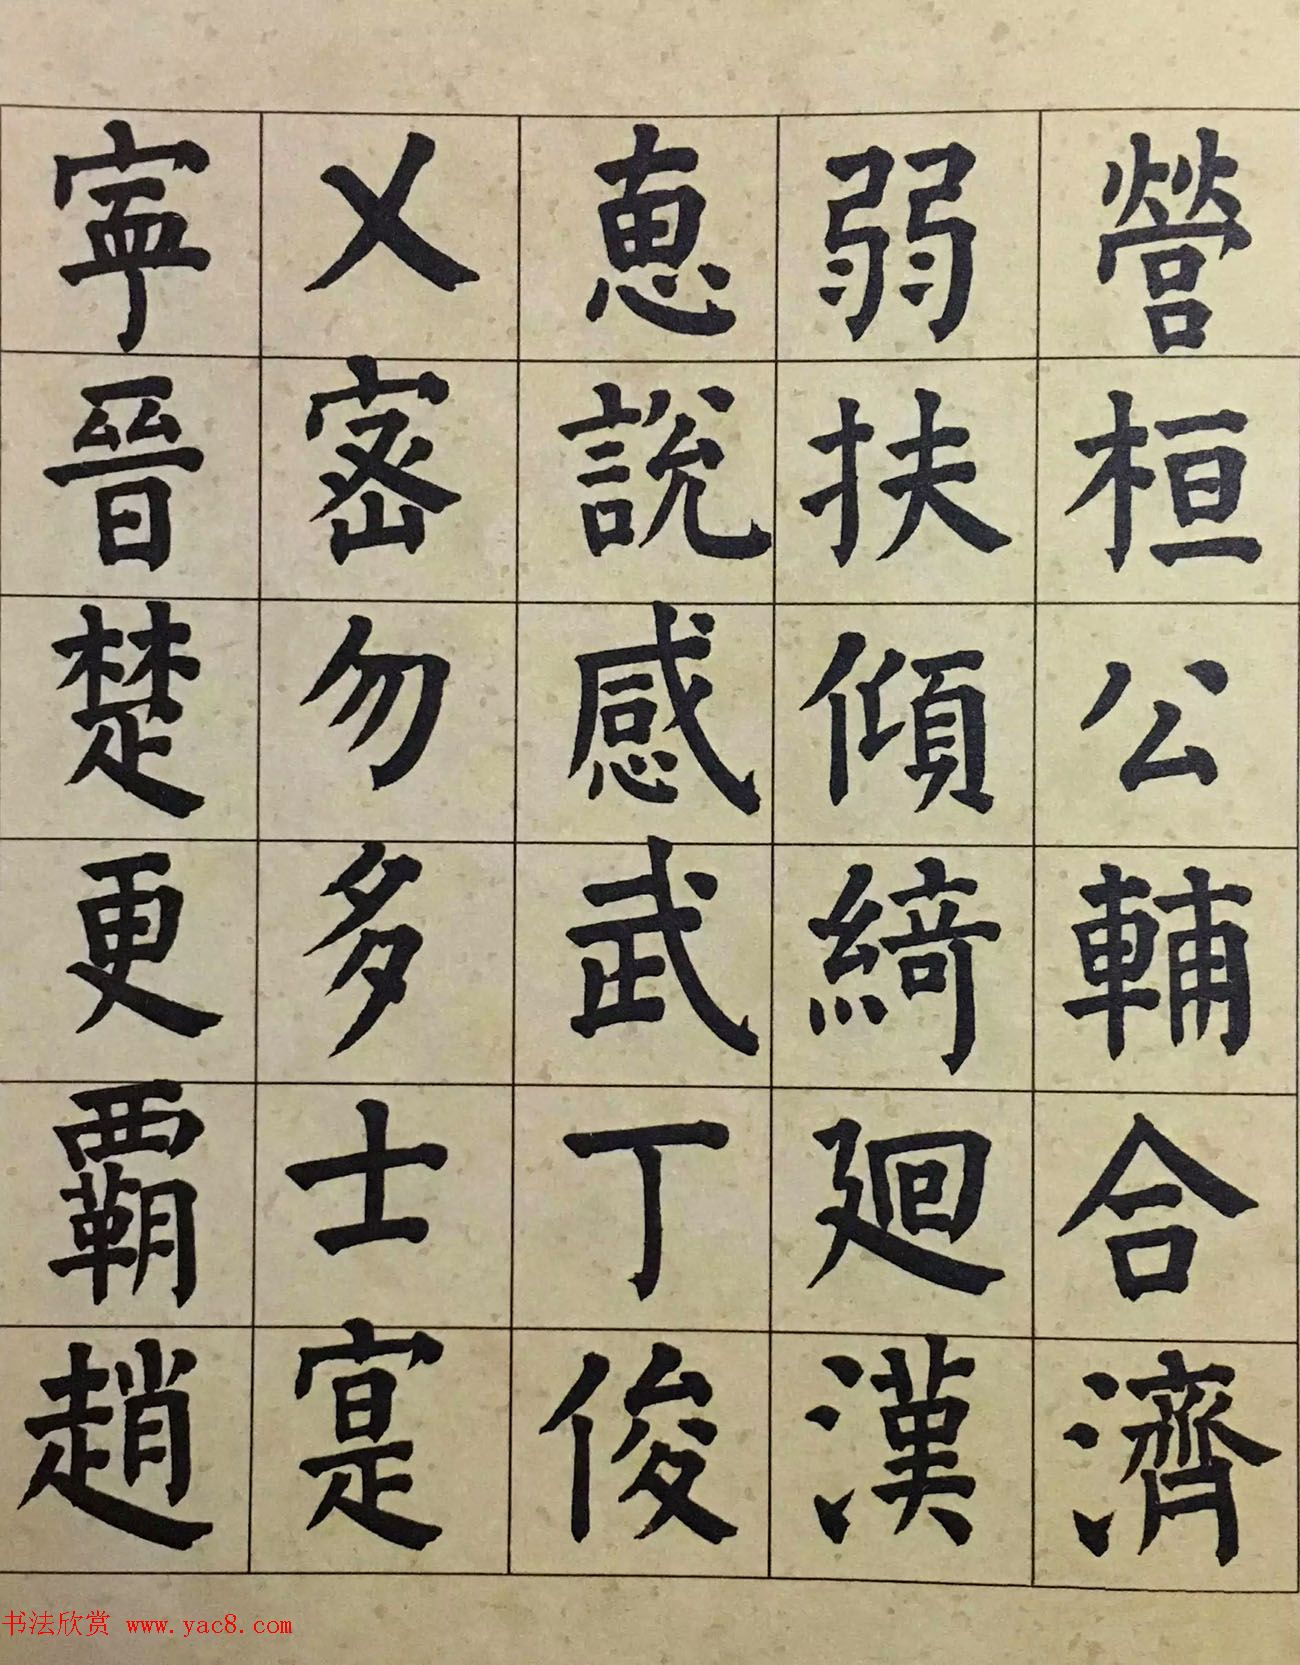 營桓公輔合濟
弱扶傾綺廻漢
恵說感武丁俊
乂密勿多士寔
寧晉楚更霸趙
书法欣赏 www.yac8.com